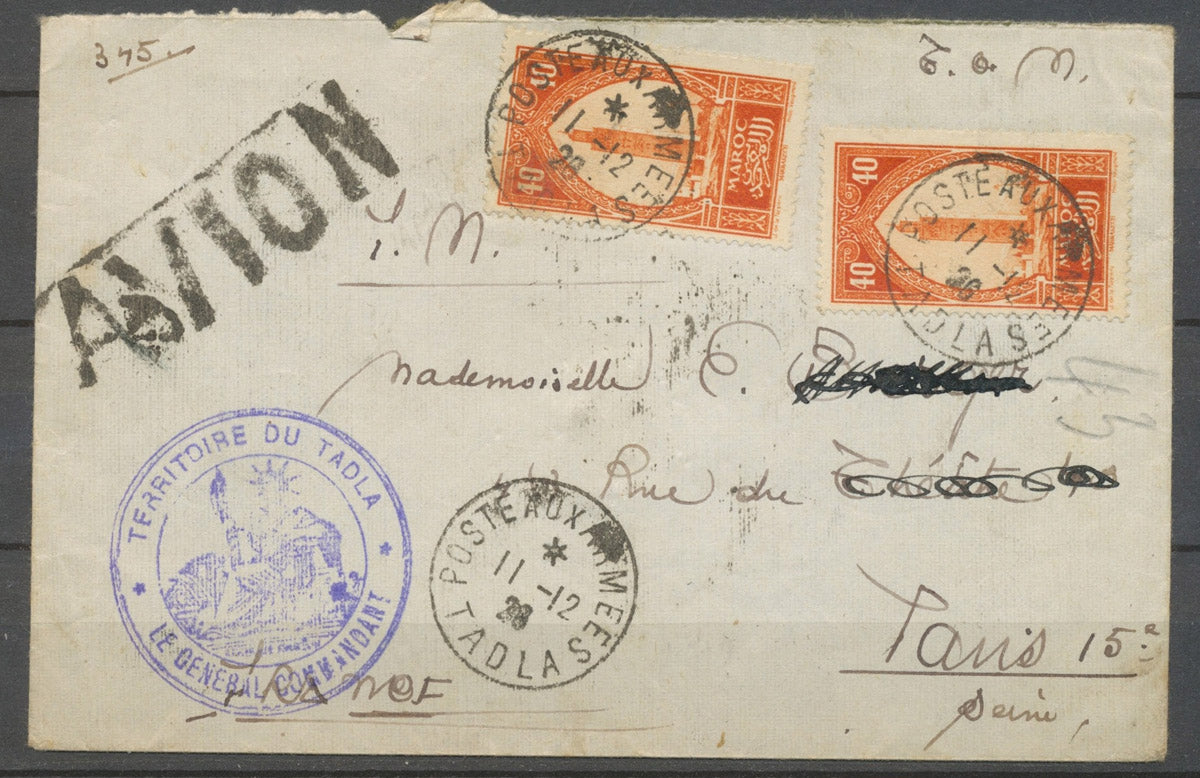 345.
AVION
40 40
MAROC
المغرب
POSTE AUX ARMEES
11 -12
28
40 40
POSTE AUX ARMEES
11 -12
28
TADLA
Mademoiselle E.
Rue du
TERRITOIRE DU TADLA
LE GENERAL COMMANDANT
POSTE AUX ARMEES
11 -12
28
TADLA
Paris 15e
Seine,
FRANCE